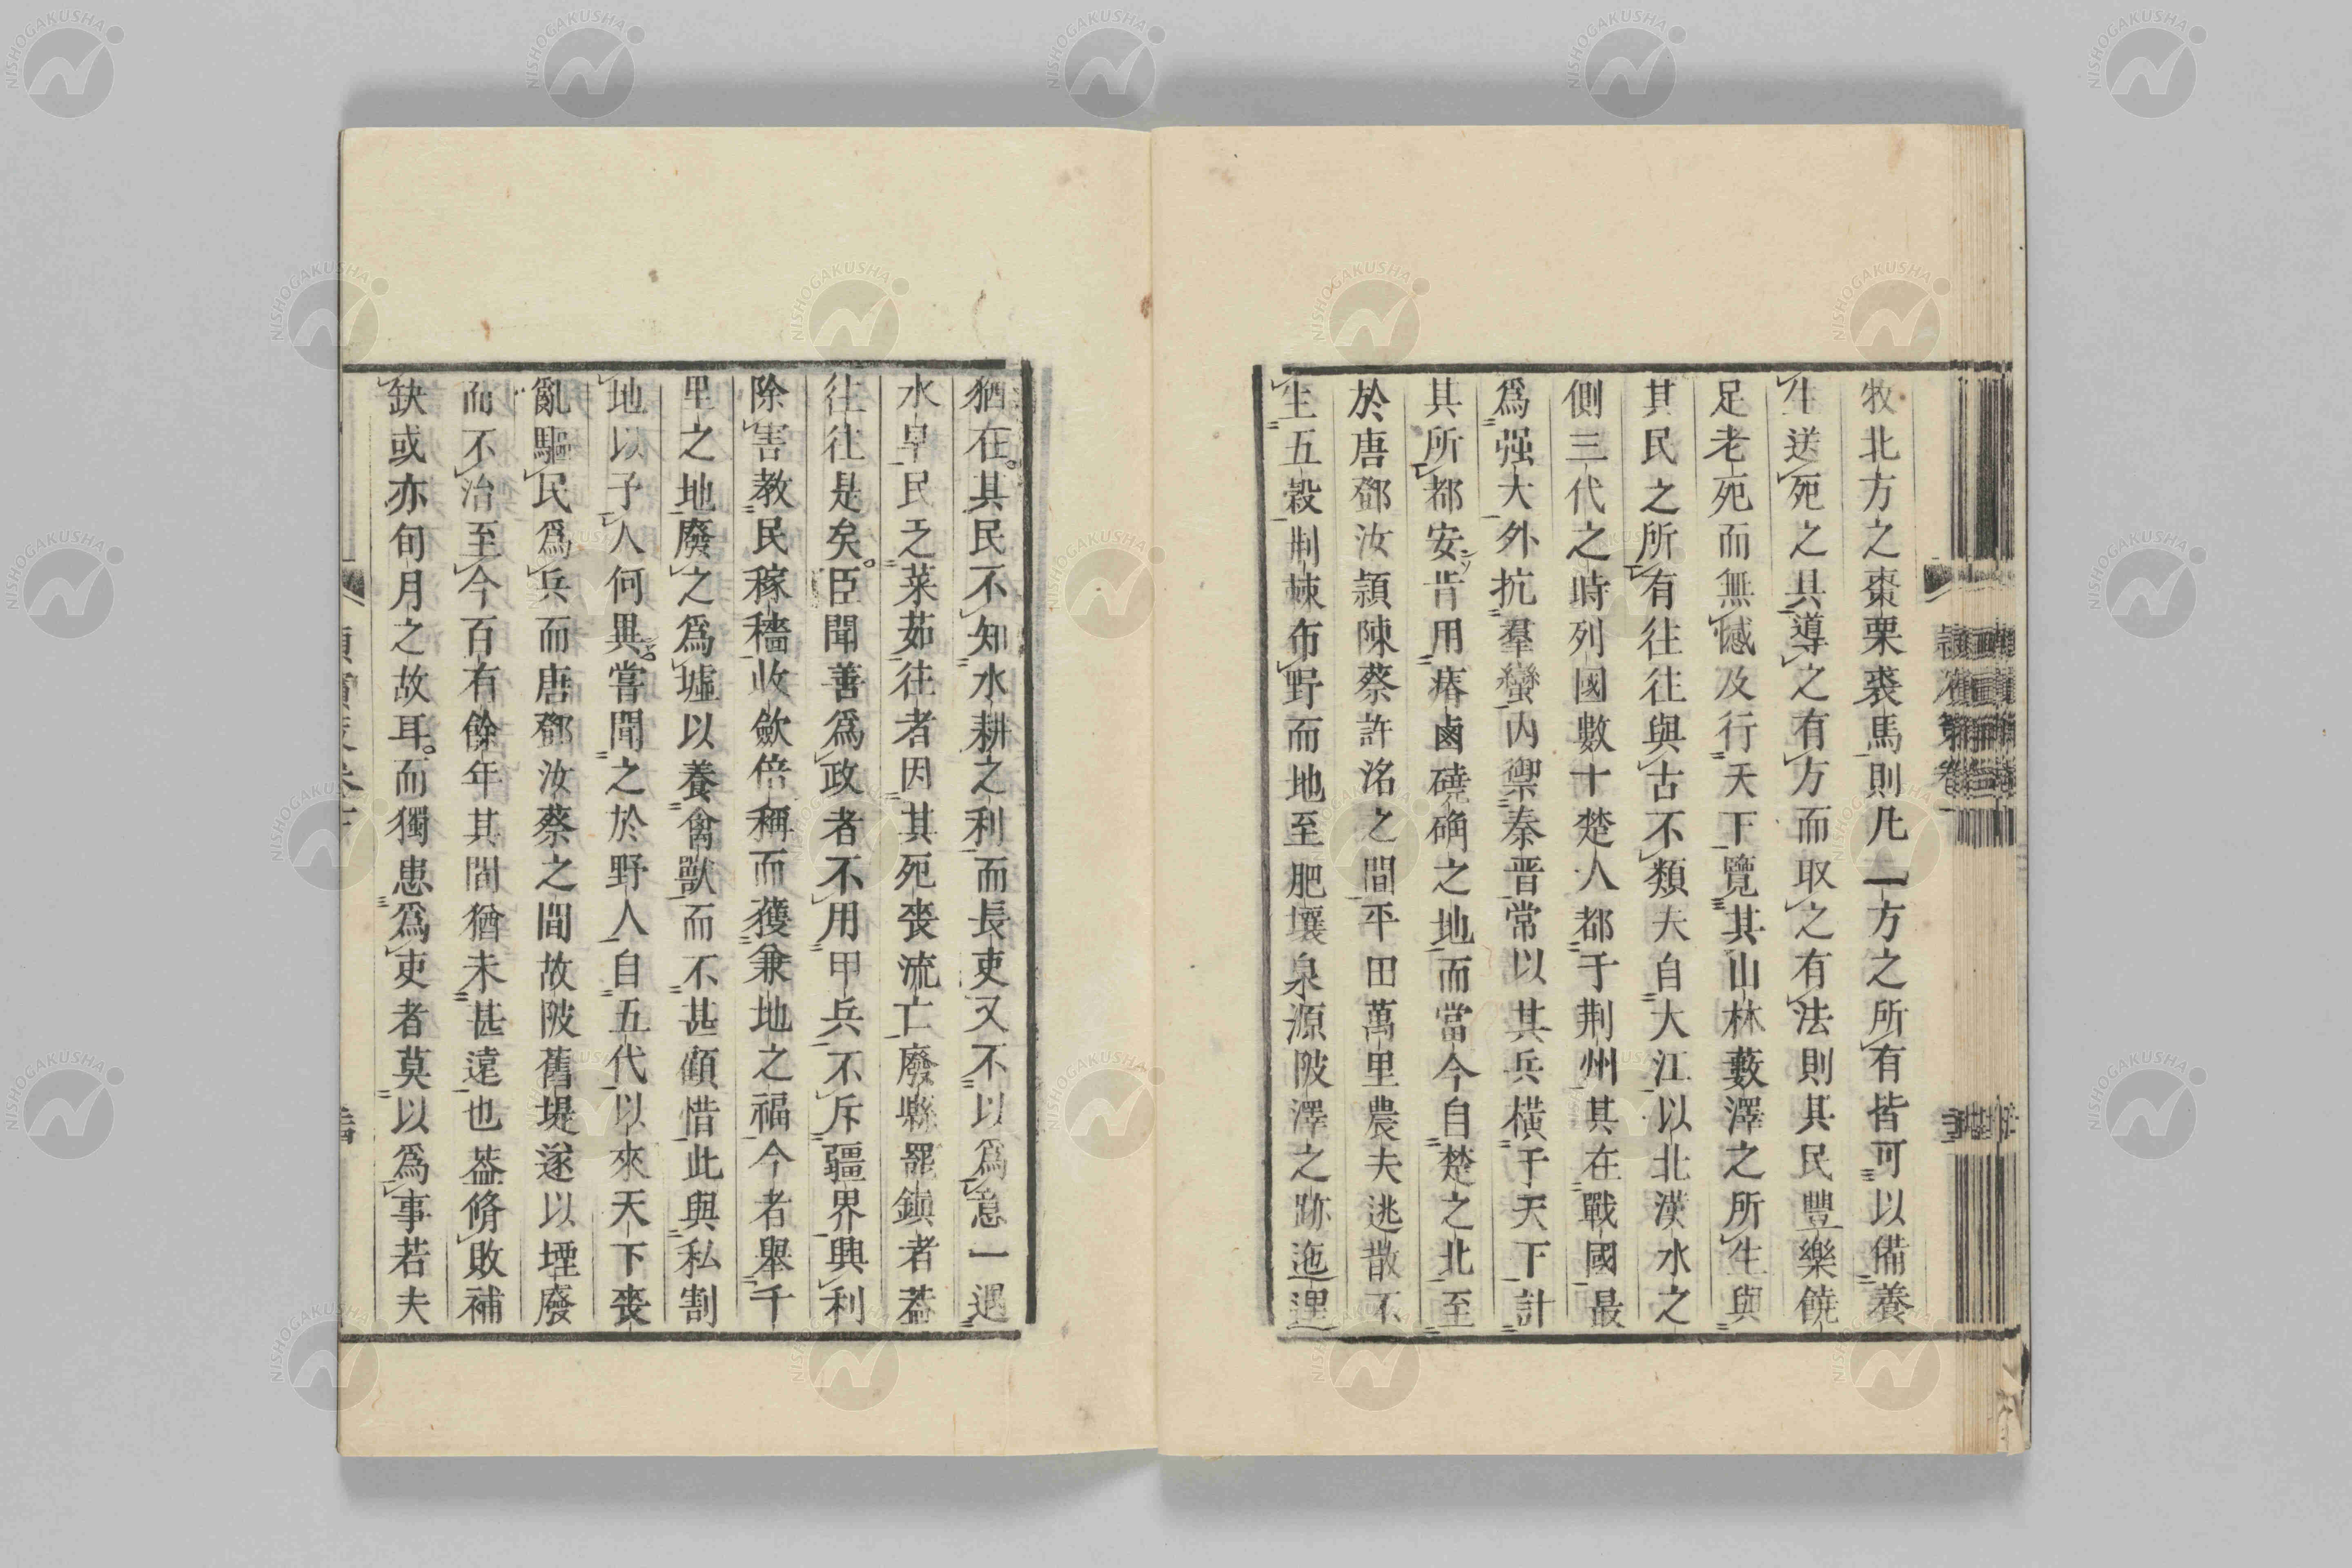 牧北方之棗栗裘馬則凡一方之所有皆可以備養
生送死之具導之有方而取之有法則其民豐樂饒
足老死而無憾及行天下覽其山林藪澤之所生與
其民之所有往往與古不類夫自大江以北漢水之
側三代之時列國數十楚人都于荆州其在戰國最
爲强大外抗羣蠻内禦秦晋常以其兵橫于天下計
其所都安肯用瘠鹵磽确之地而當今自楚之北至
於唐鄧汝頴陳蔡許洺之間平田萬里農夫逃散不
生五穀荆棘布野而地至肥壤泉源陂澤之跡迤逦
猶在其民不知水耕之利而長吏又不以爲意一遇
水旱民乏菜茹往者因其死喪流亡廢縣罷鎮者葢
往往是矣臣聞善爲政者不用甲兵不斥疆界興利
除害教民稼穡收歛倍稱而獲兼地之福今者舉千
里之地廢之爲墟以養禽獸而不甚顧惜此與私割
地以予人何異嘗聞之於野人自五代以來天下喪
亂驅民爲兵而唐鄧汝蔡之間故陂舊堤遂以堙廢
而不治至今百有餘年其間猶未甚遠也葢脩敗補
缺或亦旬月之故耳而獨患爲吏者莫以爲事若夫
NISHOGAKUSHA